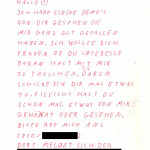 HALLO!!!
ICH HABE EINIGE DEMO'S
VON DIR GESEHEN DIE
MIR GANZ GUT GEFALLEN
HABEN. ICH WOLLTE DICH
FRAGEN OB DU INTERESSE
DARAN HAST MIT MIR
ZU TAUSCHEN. DARUM
SCHICKE ICH DIR MAL ETWAS
ZU. VIELLEICHT HAST DU
SCHON MAL ETWAS VON MIR
GEHÖRT ODER GESEHEN.
BITTE RUF MICH AN!
DORT MELDET SICH DER